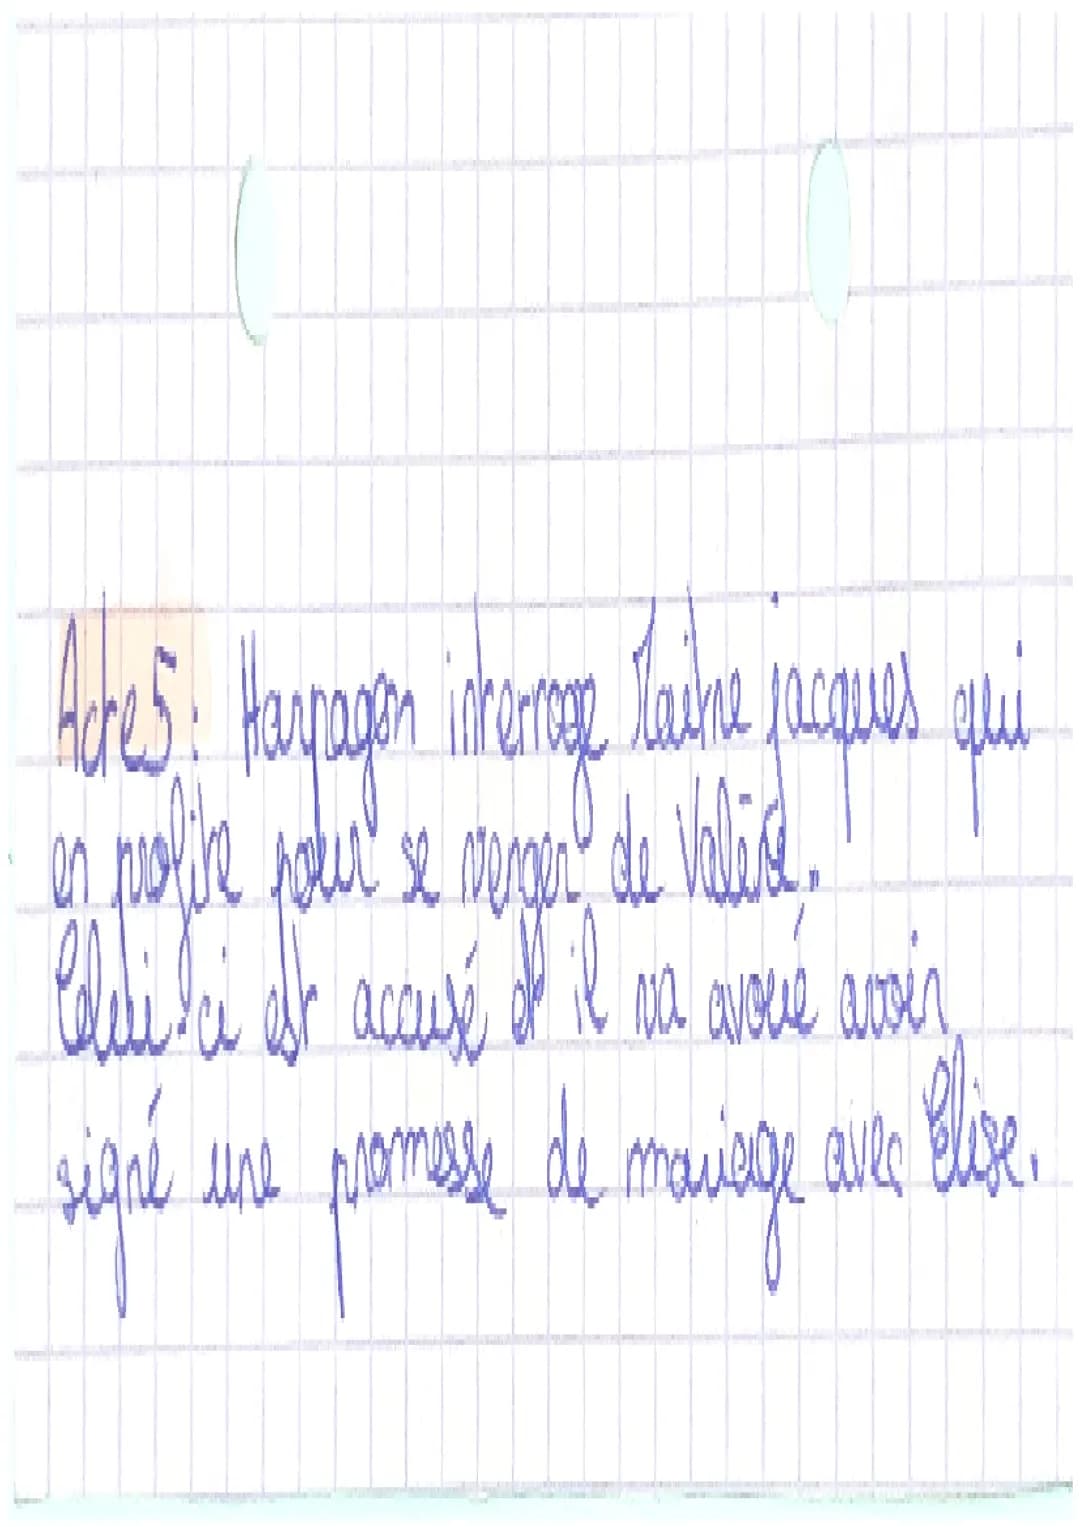 Acte 5 : Harpagon interroge Maître jacques qui
en profite pour se venger de Valère.
Celui-ci est accusé et il va avoué avoir
signé une promesse de mariage avec Elise.